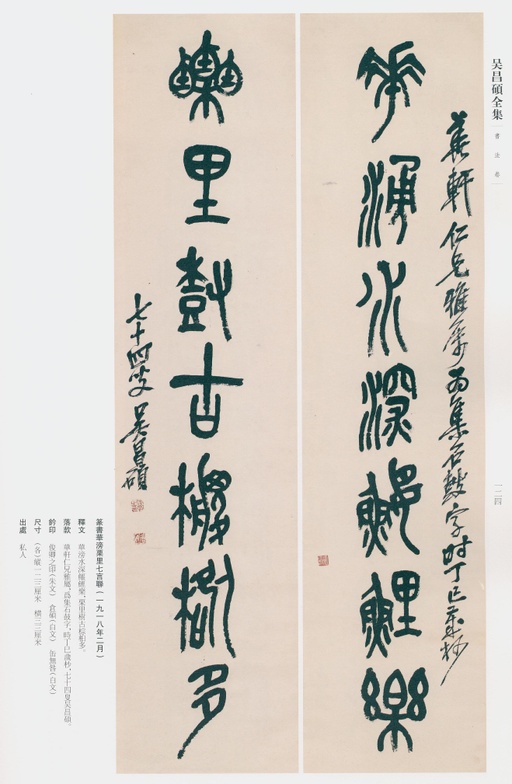 吴昌碩全集
書法卷
一二四
華軒仁兄雅屬為集石鼓字時丁巳歲杪
華滂水深鰋鯉樂
栗里樹古椶栭多
七十四叟吴昌碩
篆書華滂栗里七言聯(一九一八年二月)
釋文 華滂水深鰋鯉樂,栗里樹古椶栭多。
落款 華軒仁兄雅屬,爲集石鼓字,時丁巳歲杪,七十四叟吴昌碩。
鈐印 俊卿之印(朱文) 倉碩(白文) 缶無咎(白文)
尺寸 (各)縱一二三厘米 橫三三厘米
出處 私人